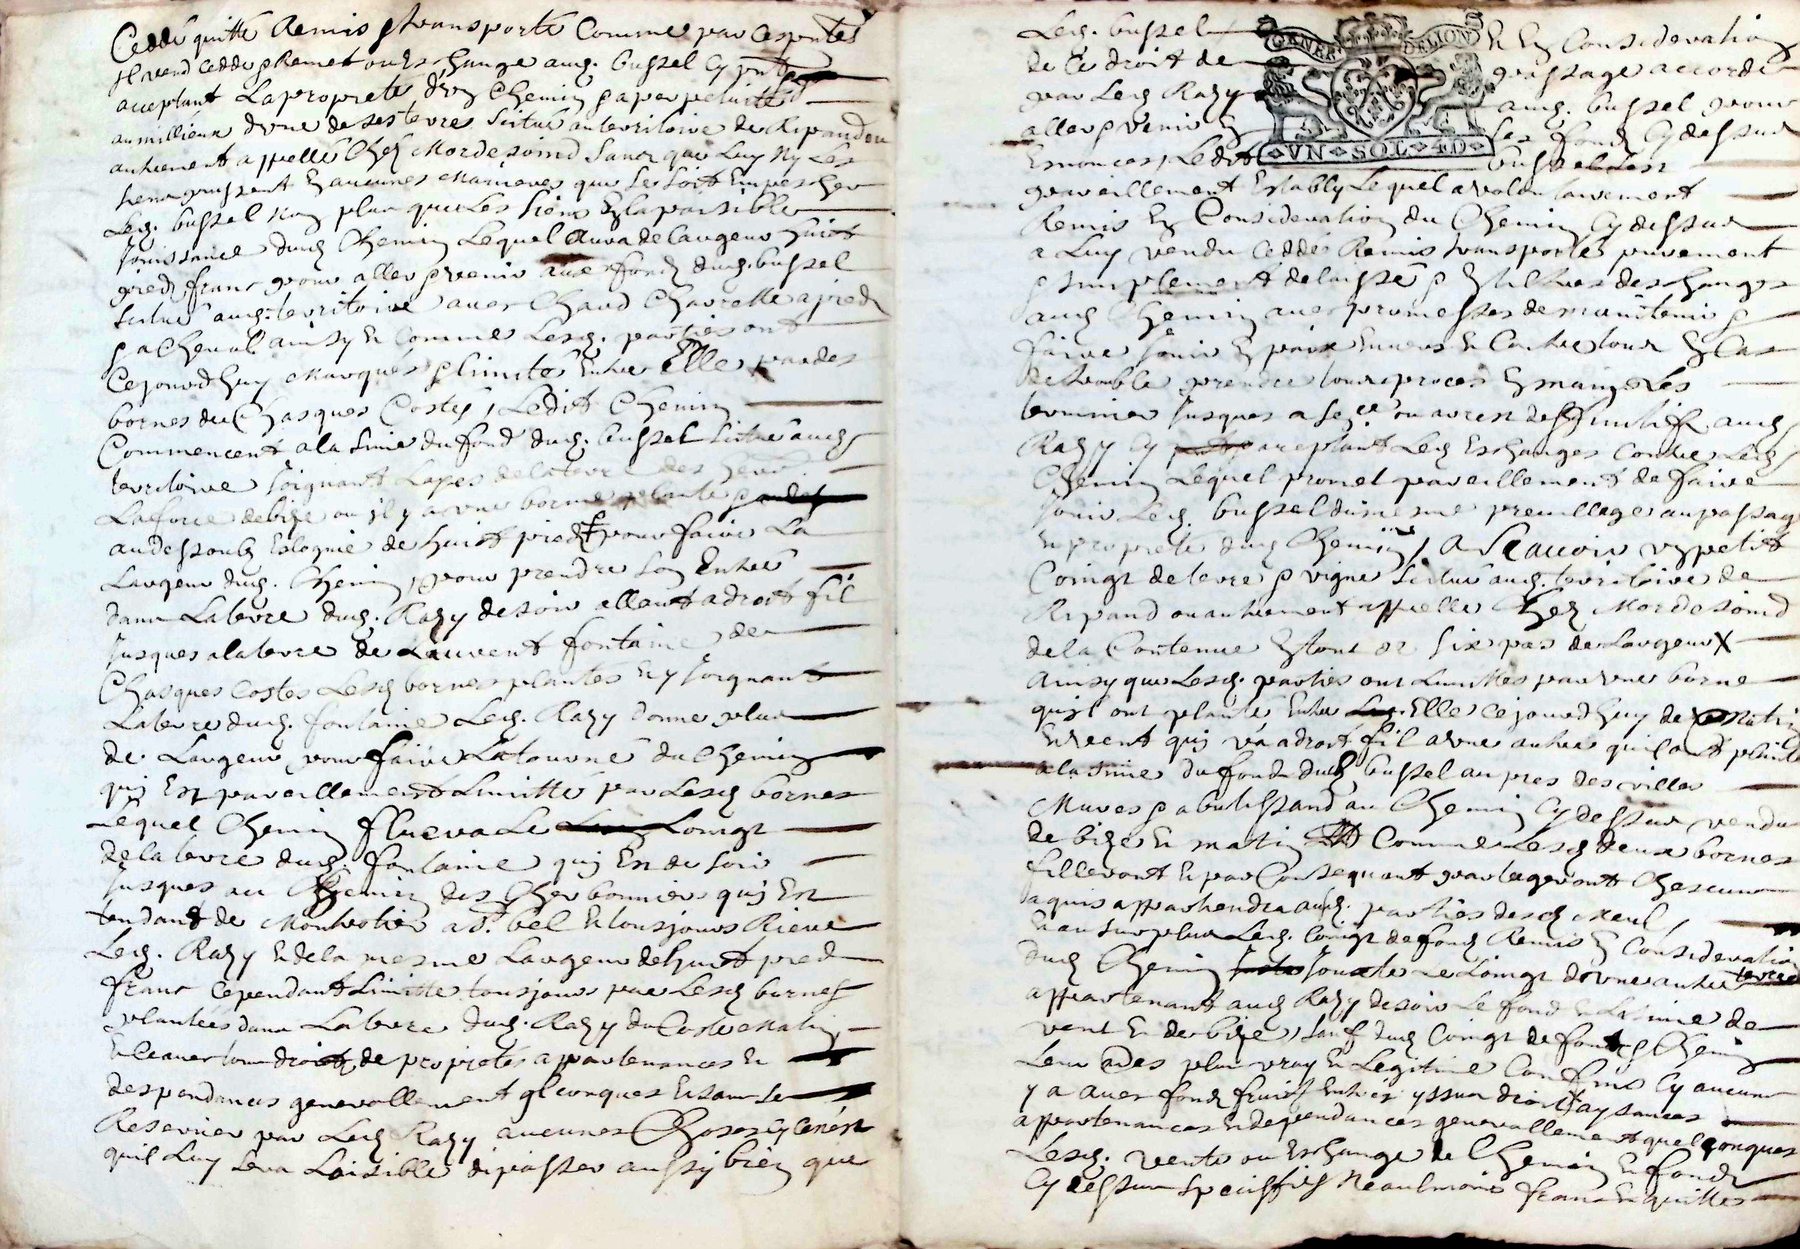 Cedde quitte Remis et transporte Comme par ces pntes
il vend cedde et Remet ou Eschange aud. bussel cy pnt
acceptant La proprete d'un Chemin et a perpetuite
au millieux d'une de ses terre situe au territoire de Ripand ou
autrement appelle Chez Mordesoind sans que Luy Ny Les
siens puissent En aucunes Manieres que se soit Empescher
Led. bussel Non plus que Les siens En la paisible
Jouissance dud Chemin Lequel Aura de Largeur huict
pied franc pour aller et venir aux fond dud. bussel
situe aud. territoire avec Chard Charrette a pied
et a Cheval ainsy Et Comme Lesd. parties ont
Cejourdhuy Marques et limites Entre Elle par des
bornes du Chasques Costes, Ledit Chemin
Commencent a la sime du fond dud. bussel situe aud
territoire Joignant La terre des
La de bize ou il y a une borne plante
au dessoub Esloignie de huit pied pour faire La
Largeur dud. Chemin, et pour prendre son Entre
dans La terre dud. Razy de soir allant a droit fil
Jusques a la terre de Lauvent fontaine de
Chasques Costes Lesd bornes plantes Et y Joignant
La terre dud. fontaine Led. Razy donne plus
de Largeur pour faire La tourne du Chemin
quy Est pareillement Limitte par Lesd bornes
Lequel Chemin Le Loingt
de la terre dud. fontaine quy Est de soir
Jusques au Chemin des Cherbonnier quy Est
tendant de Montrotier a St. bel Et tousjours Riere
Led. Razy Et de la mesme Largeur de huit pied
franc cependant Limitte tousjours par Lesd bornes
plantees dans La terre dud. Razy du Coste Matin
Et ce avec tous droict de propriete appartenances Et
despendances generallement qlconques Et sans se
Reserver par Led Razy aucunes Choses sy Ce n'est
quil Luy sera Loisible de passer aussy bien que
Led. bussel Et En Consideration
de ce droit de passage accorde
par Led Razy aud. bussel pour
aller et venir En ses fond Cy dessus
Enonces, Ledit bussel sest
pareillement Estably Lequel a volontairement
Remis En Consideration du Chemin Cy dessus
a Luy vendu Cedde Remis transporte purement
et simplement delaisse et En tiltres deschanges
aud Chemin avec promesses de maintenir et
faire Jouir En paix Envers Et Contre tous En Cas
de trouble prendre tous proces En main Et Les
terminer Jusques a sece ou arrest deffinitif aud
Razy Cy acceptant Led Eschanges Contre Led
Chemin Lequel promet pareillement de faire
Jouir Led. bussel du mesme previllage au passage
Et proprete dud Chemin, A Scavoir un petit
Coingt de terre et vigne situe aud. territoire de
Ripand ou autrement appelle Chez Mordesoind
de la Contenue En tout de six pas de Largeur
Ainsy que Lesd. parties ont Limittes par une borne
quil ont plante Entre Elle Cejourdhuy de Matin
Et vent quy va a droit fil a une autre quil ont plante
a la sime du fond dud bussel au pres des villes
Mures et abutissand au Chemin Cy dessus vendu
de bize Et matin Comme Lesd deux bornes
filleront Et par Consequant partageront Chescun
a quis appartiendra aud. parties desd
Et au surplus Led. Coingt de fond Remis En Consideration
dud Chemin Jouxte Le Loingt d'une autre terre
appartenant aud Razy de soir Le fond Et La sime de
vent Et de bize, sauf dud Coingt de fond et Chemin
Leur Ades plus vray Et Legitime Confins sy aucuns
y a avec fond fruict Entres yssues droict aysances
appartenances Et dependances generallement quelconques
Lesd. vente ou Eschange de Chemin Et fond
Cy dessus speciffies Neaulmoins franc Et quittes
GENER DE LION
VN · SOL · 4D